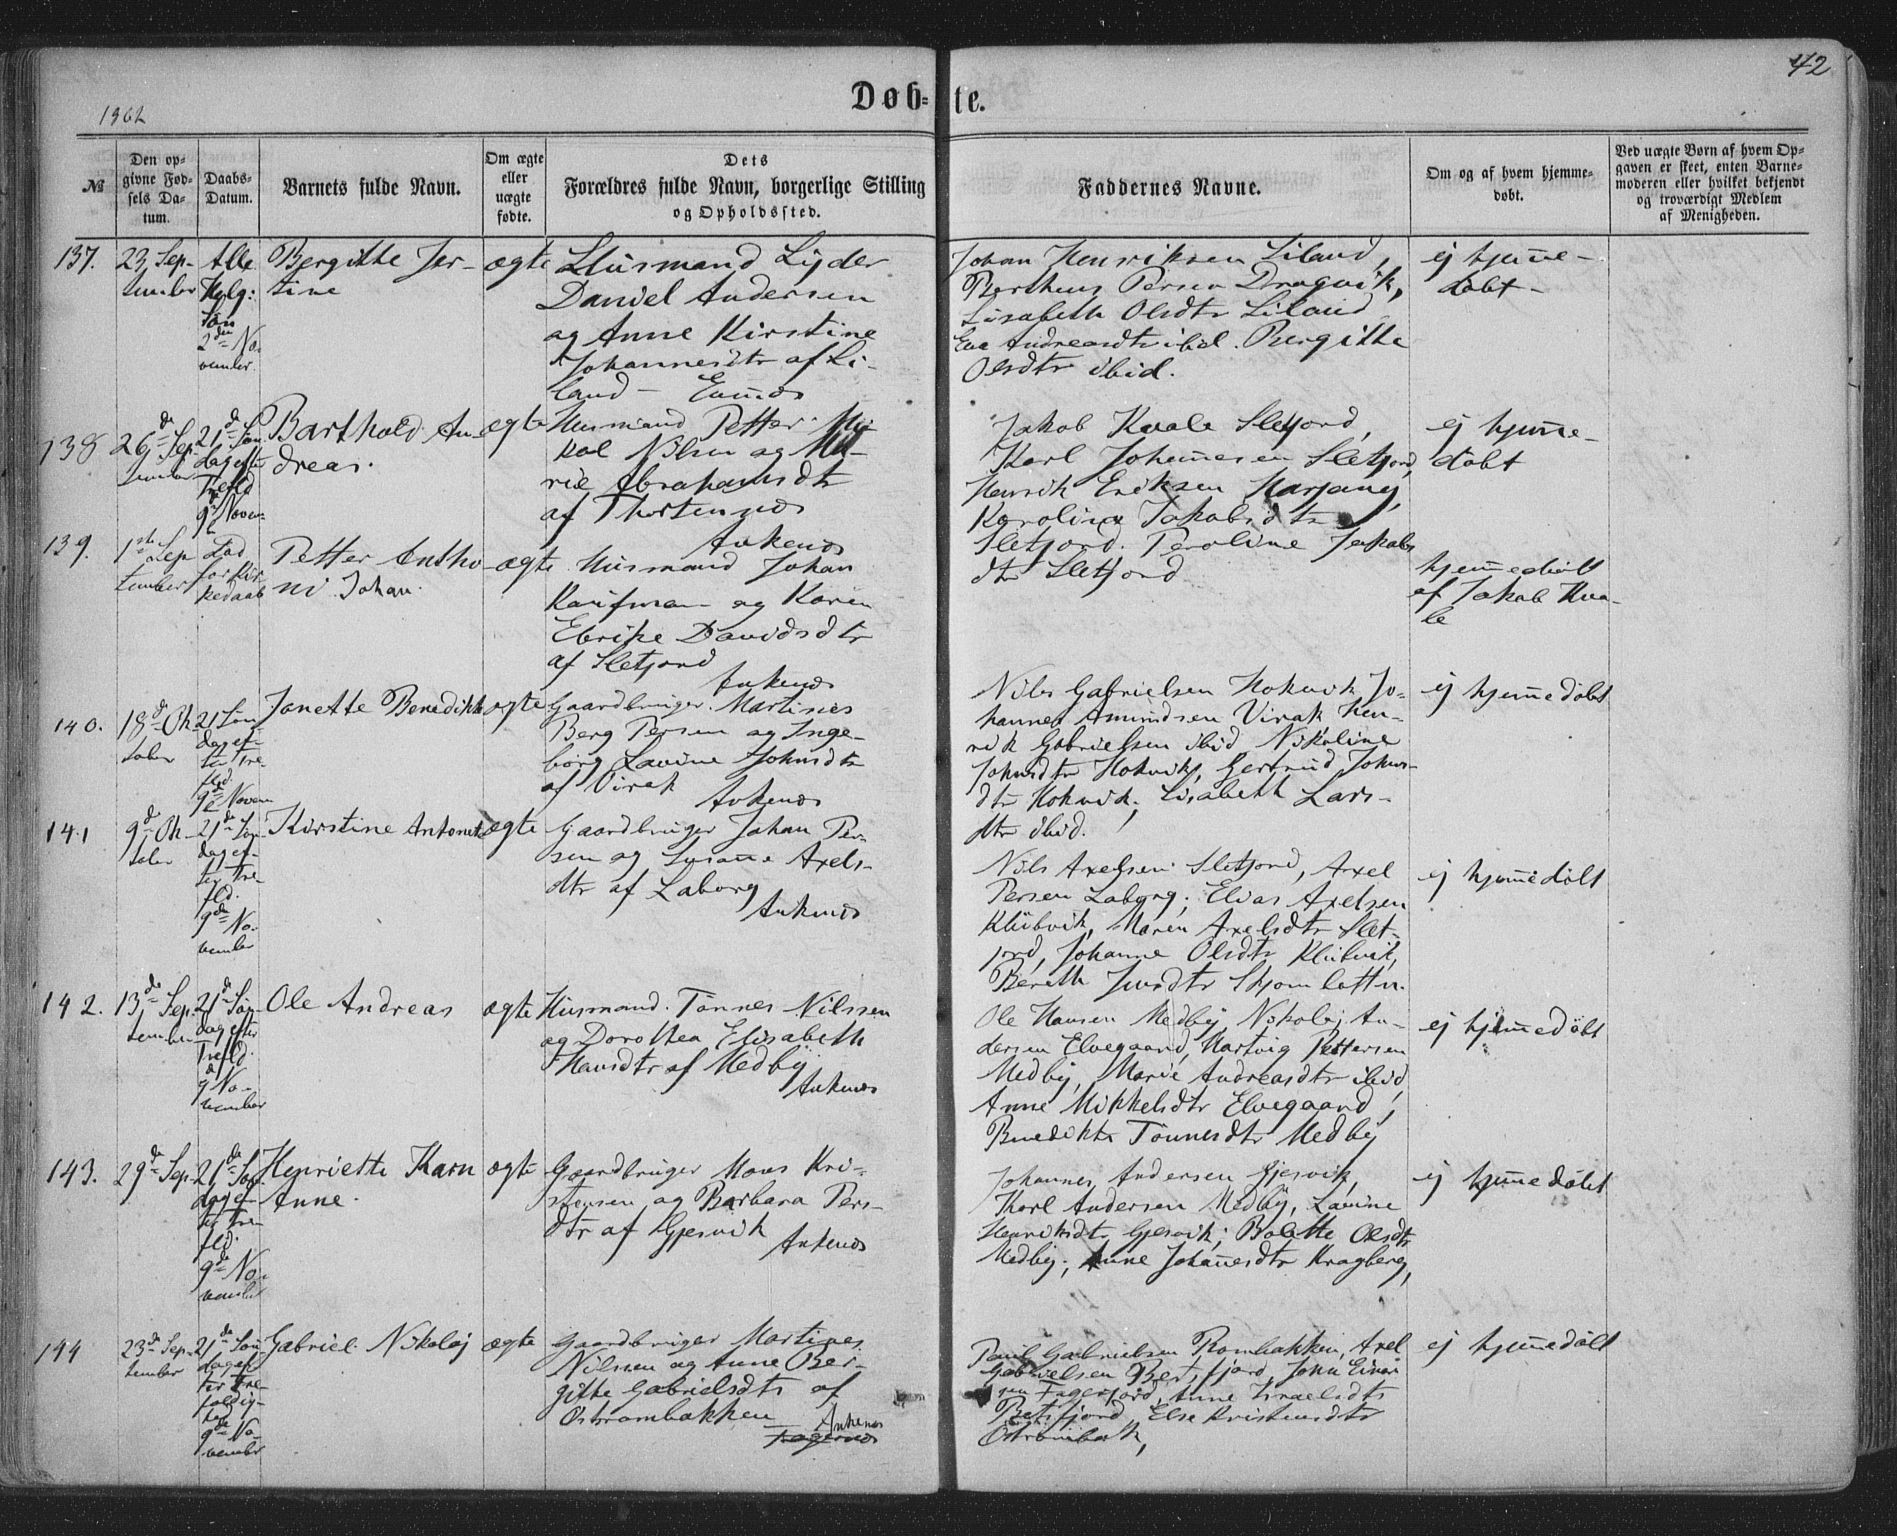 42
1862
Døb-te.
№
Den op-
givne Fød-
sels Da-
tum.
Daabs-
Datum.
Barnets fulde Navn.
Om ægte
eller
uægte
fødte.
Dets
Forældres fulde Navn, borgerlige Stilling
og Opholdssted.
Faddernes Navne.
Om og af hvem hjemme-
døbt.
Ved uægte Børn af hvem Op-
gaven er skeet, enten Barne-
moderen eller hvilket bekjendt
og troværdigt Medlem
af Menigheden.
137.
23 Sep-
tember
Alle
Helg:
Søn
2de No-
vember.
Bergitte Jer-
tine
ægte
Husmand Lyder
Daniel Andersen
og Anne Kirstine
Johannesdtr af Li-
land - Evenes
Johan Henriksen Liland,
Bertheus Persen Dragvik,
Lisabeth Olsdtr Liland
Eva Andreasdtr ibid. Bergitte
Olsdtr ibid.
ej hjemme-
døbt -
138
26de Sep-
tember
21de Søn-
dag efter
Trefld
9de Novem-
Barthold An-
dreas.
ægte
Husmand Petter Mi-
kal Nilsen og Ma-
rie Abrahamsdtr
af Thortennes
Ankenes
Jakob Kvale Sletjord,
Karl Johannesen Sletjord,
Henrik Eriksen Harjang,
Karoline Jakobsdtr
Sletjord. Peroline Jakobs
dtr Sletjord
ej hjemme-
døbt
139.
1ste Sep-
tember
Lød
for Kir-
kedaab
Petter Antho-
ni Johan.
ægte
Husmand Johan
Kaufman og Karen
Ebrike Davidsdtr
af Sletjord
Ankenes
hjemmedøbt
af Jakob Kva-
le
140.
18de Ok-
tober
21 Søn-
dag ef-
ter Tre-
fld.
9de Novem
Janette Benedikte
ægte
Gaardbruger Martines
Berg Persen og Inge-
borg Lavine Johnsdtr
af Virak
Ankenes
Nils Gabrielsen Hokvik Jo-
hannes Amundsen Virak Hen-
rik Gabrielsen ibid Nikoline
Johnsdtr Hokvik, Gertrud Johns-
dtr Hokvik, Elisabeth Lars-
dtr ibid.
ej hjemmedøbt
141
9de Ok-
tober
21de Søn-
dag ef-
ter Tre-
fld.
9de No-
vember
Kirstine Antonete
ægte
Gaardbruger Johan Per-
sen og Susanne Axels-
dtr af Laborg
Ankenes
Nils Axelsen Sletjord, Axel
Persen Laborg; Elias Axelsen
Klubvik, Maren Axelsdtr Slet-
jord, Johanne Olsdtr Klubvik,
Bereth Jensdtr Skjomlotten.
ej hjemmedøbt
142.
13de Sep-
tember
21de Søn-
dag efter
Trefld.
9 No-
vember
Ole Andreas
ægte
Husmand. Tønnes Nilssen
og Dorothea Elisabeth
Hansdtr af Medby
Ankenes
Ole Hansen Medby, Nikolaj An-
dersen Elvegaard, Hartvig Pettersen
Medby, Marie Andreasdtr ibid,
Anne Mikkelsdtr Elvegaard,
Benedikte Tønnesdtr Medby
ej hjemmedøbt
143.
29de Sep-
21de Søn-
dag ef-
ter Tre-
fld.
9de No-
vember
Henriette Karn
Anne.
ægte
Gaardbruger Mons Kri-
stensen og Barbara Pers-
dtr af Gjesvik
Ankenes
Johannes Andersen Gjesvik,
Karl Andersen Medby, Lavine
Henriksdtr Gjesvik; Bolette Olsdtr
Medby; Anne Johannesdtr Kragberg,
ej hjemmedøbt
144
23de Sep-
tember
21de Søn-
dag ef-
ter Tre-
foldig-
hed
9de No-
vember
Gabriel Nikolaj
ægte
Gaardbruger Martines
Nilssen og Anne Ber-
gitte Gabrielsdtr af
Ostrombakken
Ankenes
Fagernes
Paul Gabrielsen Rombakken, Axel
Gabrielsen Beisfjord, John Einar
sen Fagerjord, Anne Israelsdtr
Beisfjord, Else Kristensdtr
Ostrombak,
ej hjemmedøbt